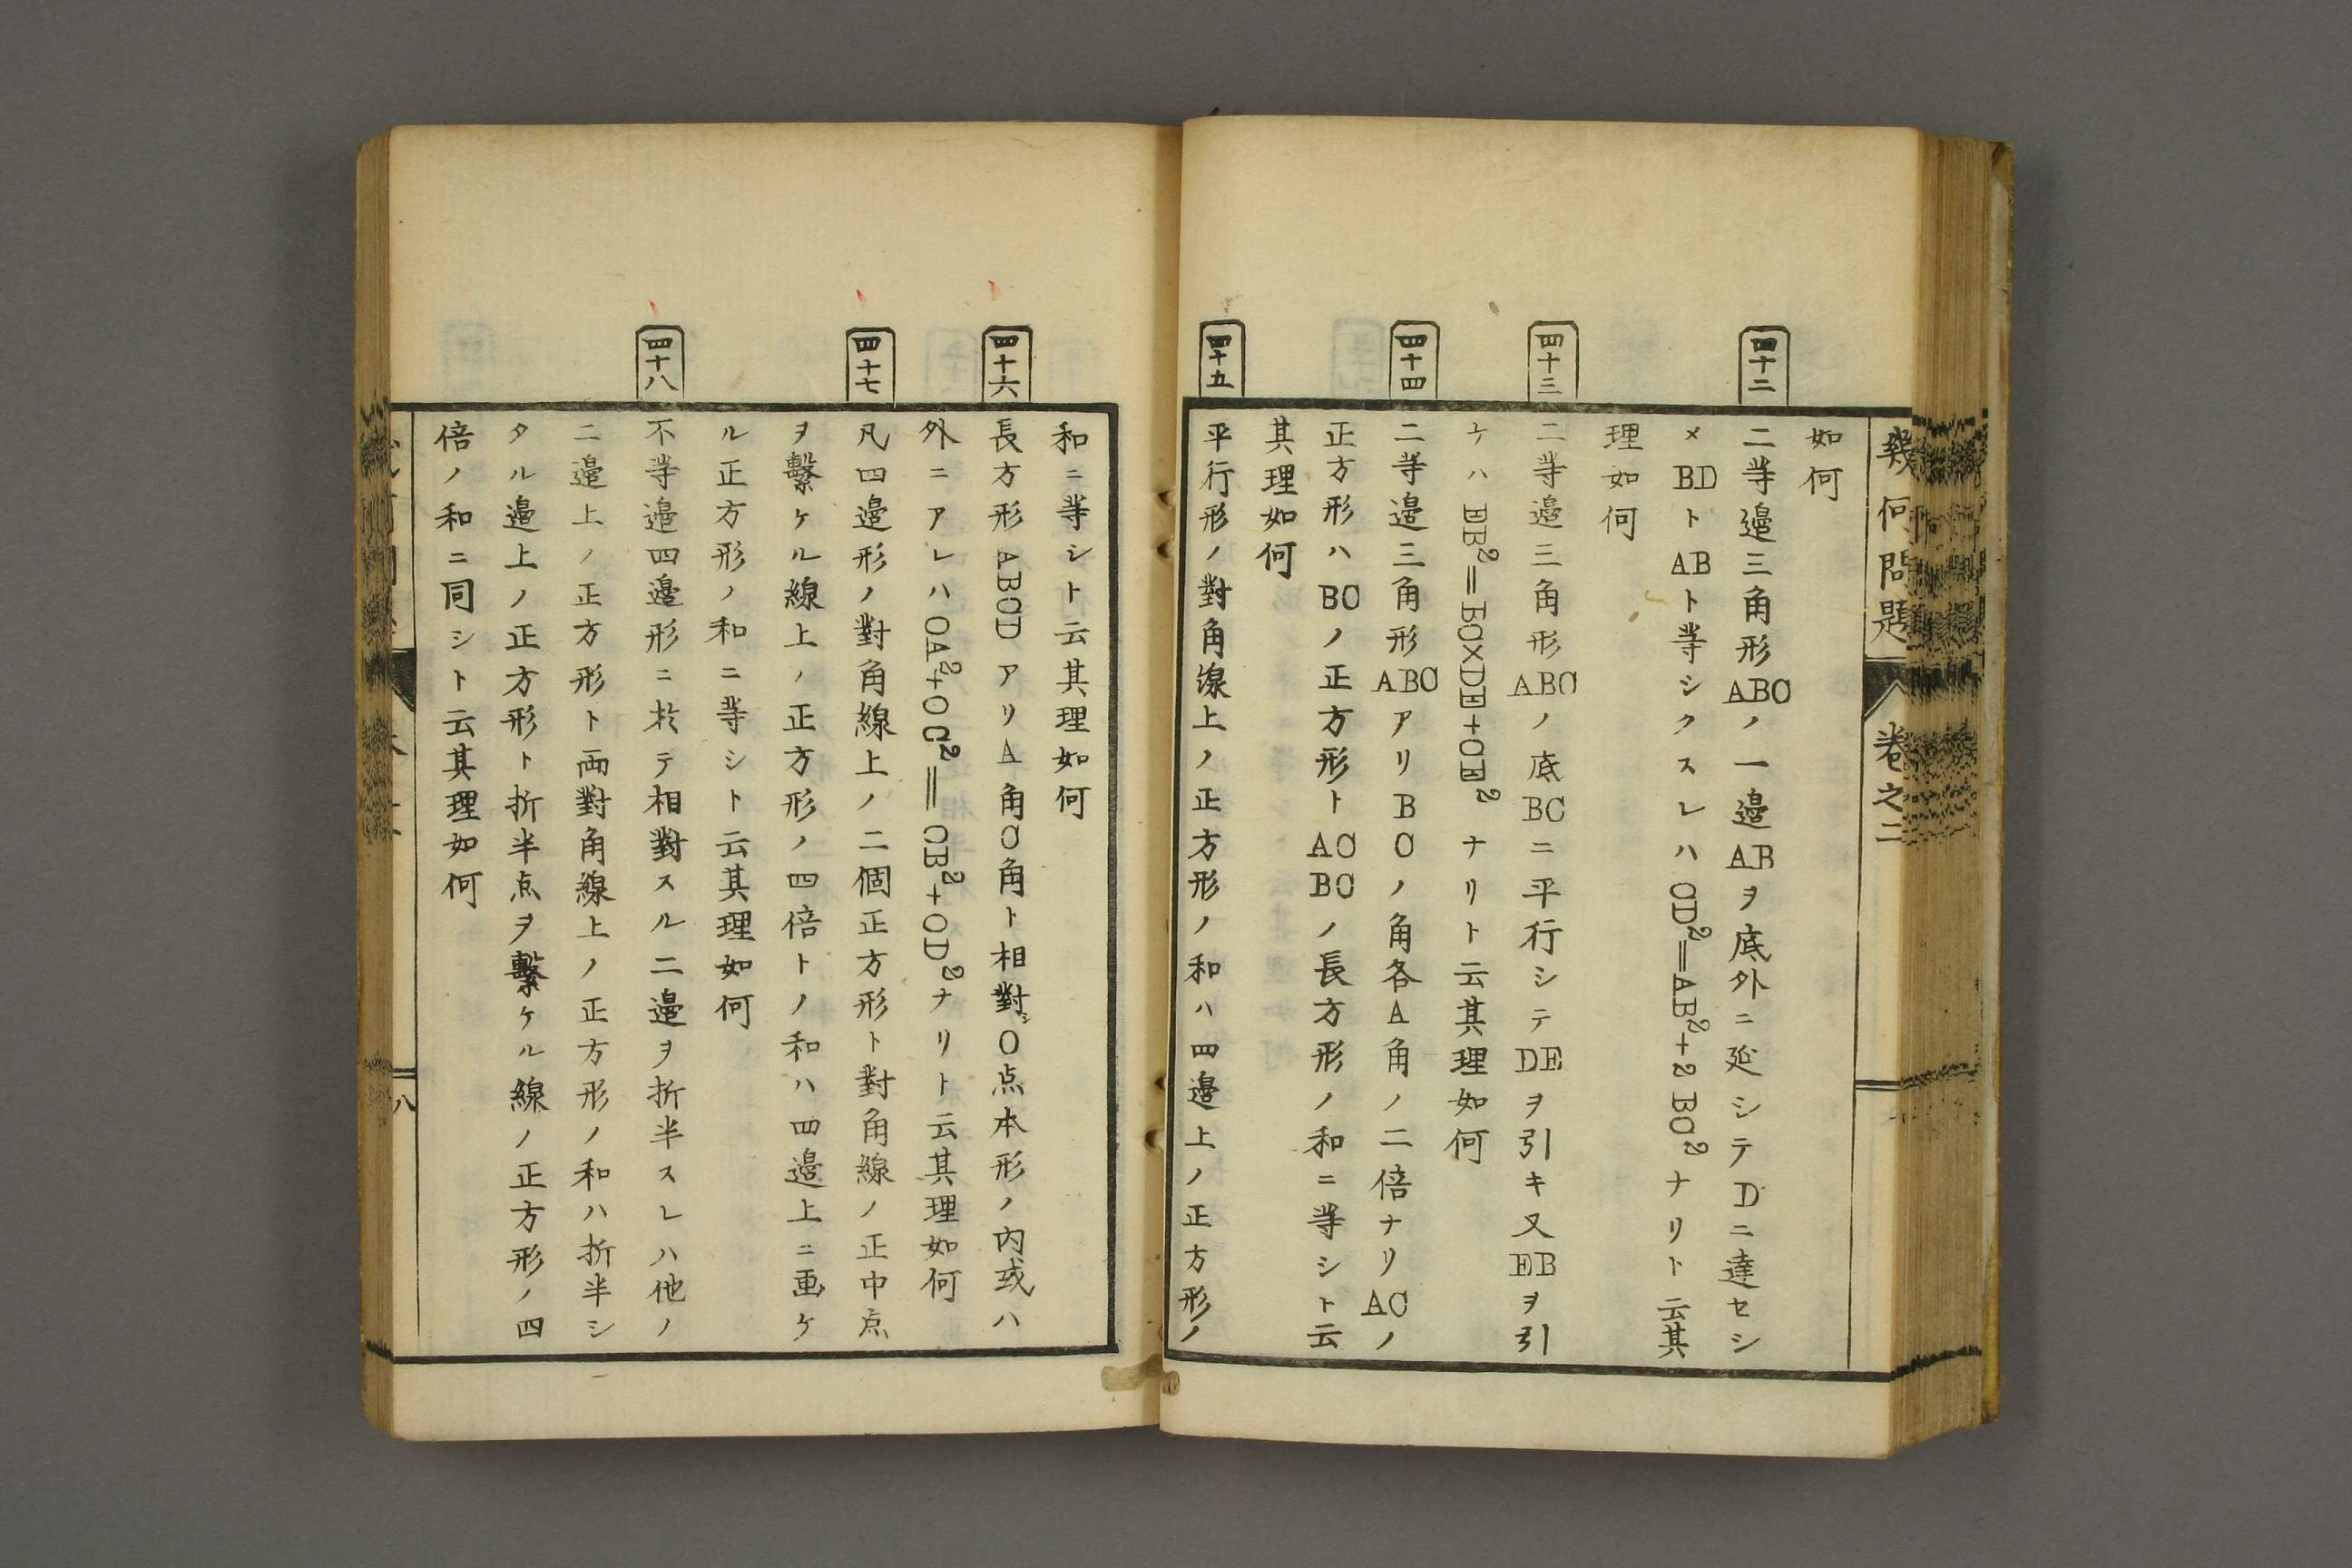 幾何問題
卷之二
如何
四十二
二等邉三角形ABCノ一邉ABヲ底外ニ延シテDニ達セシ
メBDトABト等シクスレハCD²=AB²+2BC²ナリト云其
理如何
四十三
二等邉三角形ABCノ底BCニ平行シテDEヲ引キ又EBヲ引
ケハEB²=BC×DE+CE²ナリト云其理如何
四十四
二等邉三角形ABCアリBCノ角各A角ノ二倍ナリACノ
正方形ハBCノ正方形トACBCノ長方形ノ和ニ等シト云
其理如何
四十五
平行形ノ對角線上ノ正方形ノ和ハ四邉上ノ正方形ノ
和ニ等シト云其理如何
四十六
長方形ABCDアリA角C角ト相對シO点本形ノ内或ハ
外ニアレハOA²+OC²=OB²+OD²ナリト云其理如何
四十七
凡四邉形ノ對角線上ノ二個正方形ト對角線ノ正中点
ヲ繫ケル線上ノ正方形ノ四倍トノ和ハ四邉上ニ画ケ
ル正方形ノ和ニ等シト云其理如何
四十八
不等邉四邉形ニ於テ相對スル二邉ヲ折半スレハ他ノ
二邉上ノ正方形ト両對角線上ノ正方形ノ和ハ折半シ
タル邉上ノ正方形ト折半点ヲ繫ケル線ノ正方形ノ四
倍ノ和ニ同シト云其理如何
八